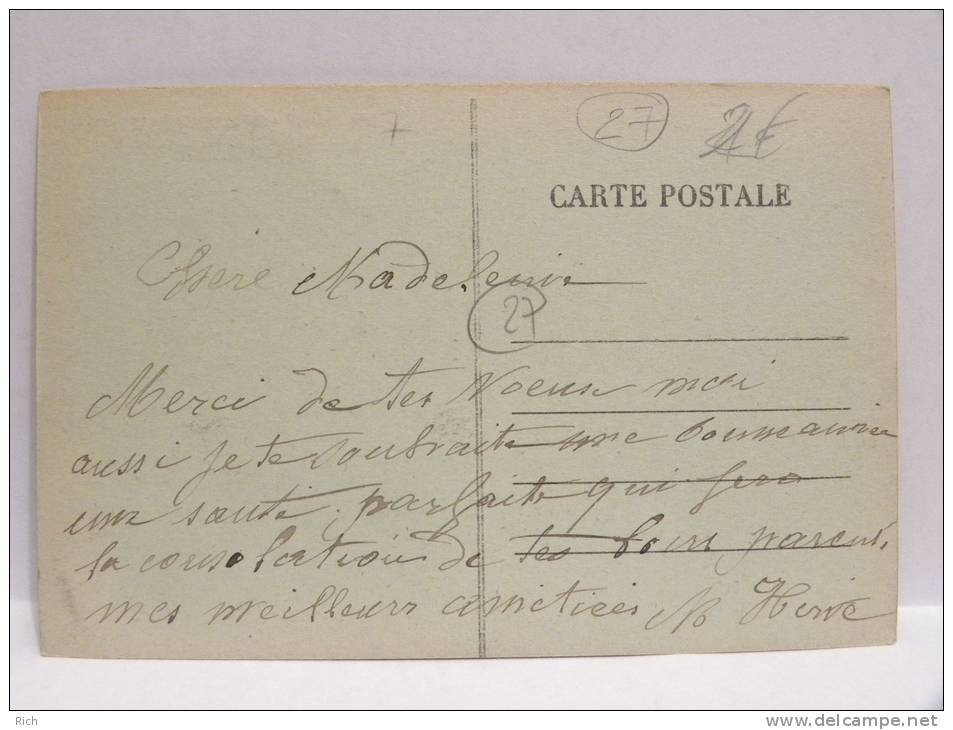 27 2€
CARTE POSTALE
Chere Madeleine
27
Merci de tes Voeux moi
aussi je te souhaite une bonne année
une santé parfaite qui fera
la consolation de tes bons parents
mes meilleurs amitiees M Hervé
Rich
www.delcampe.net